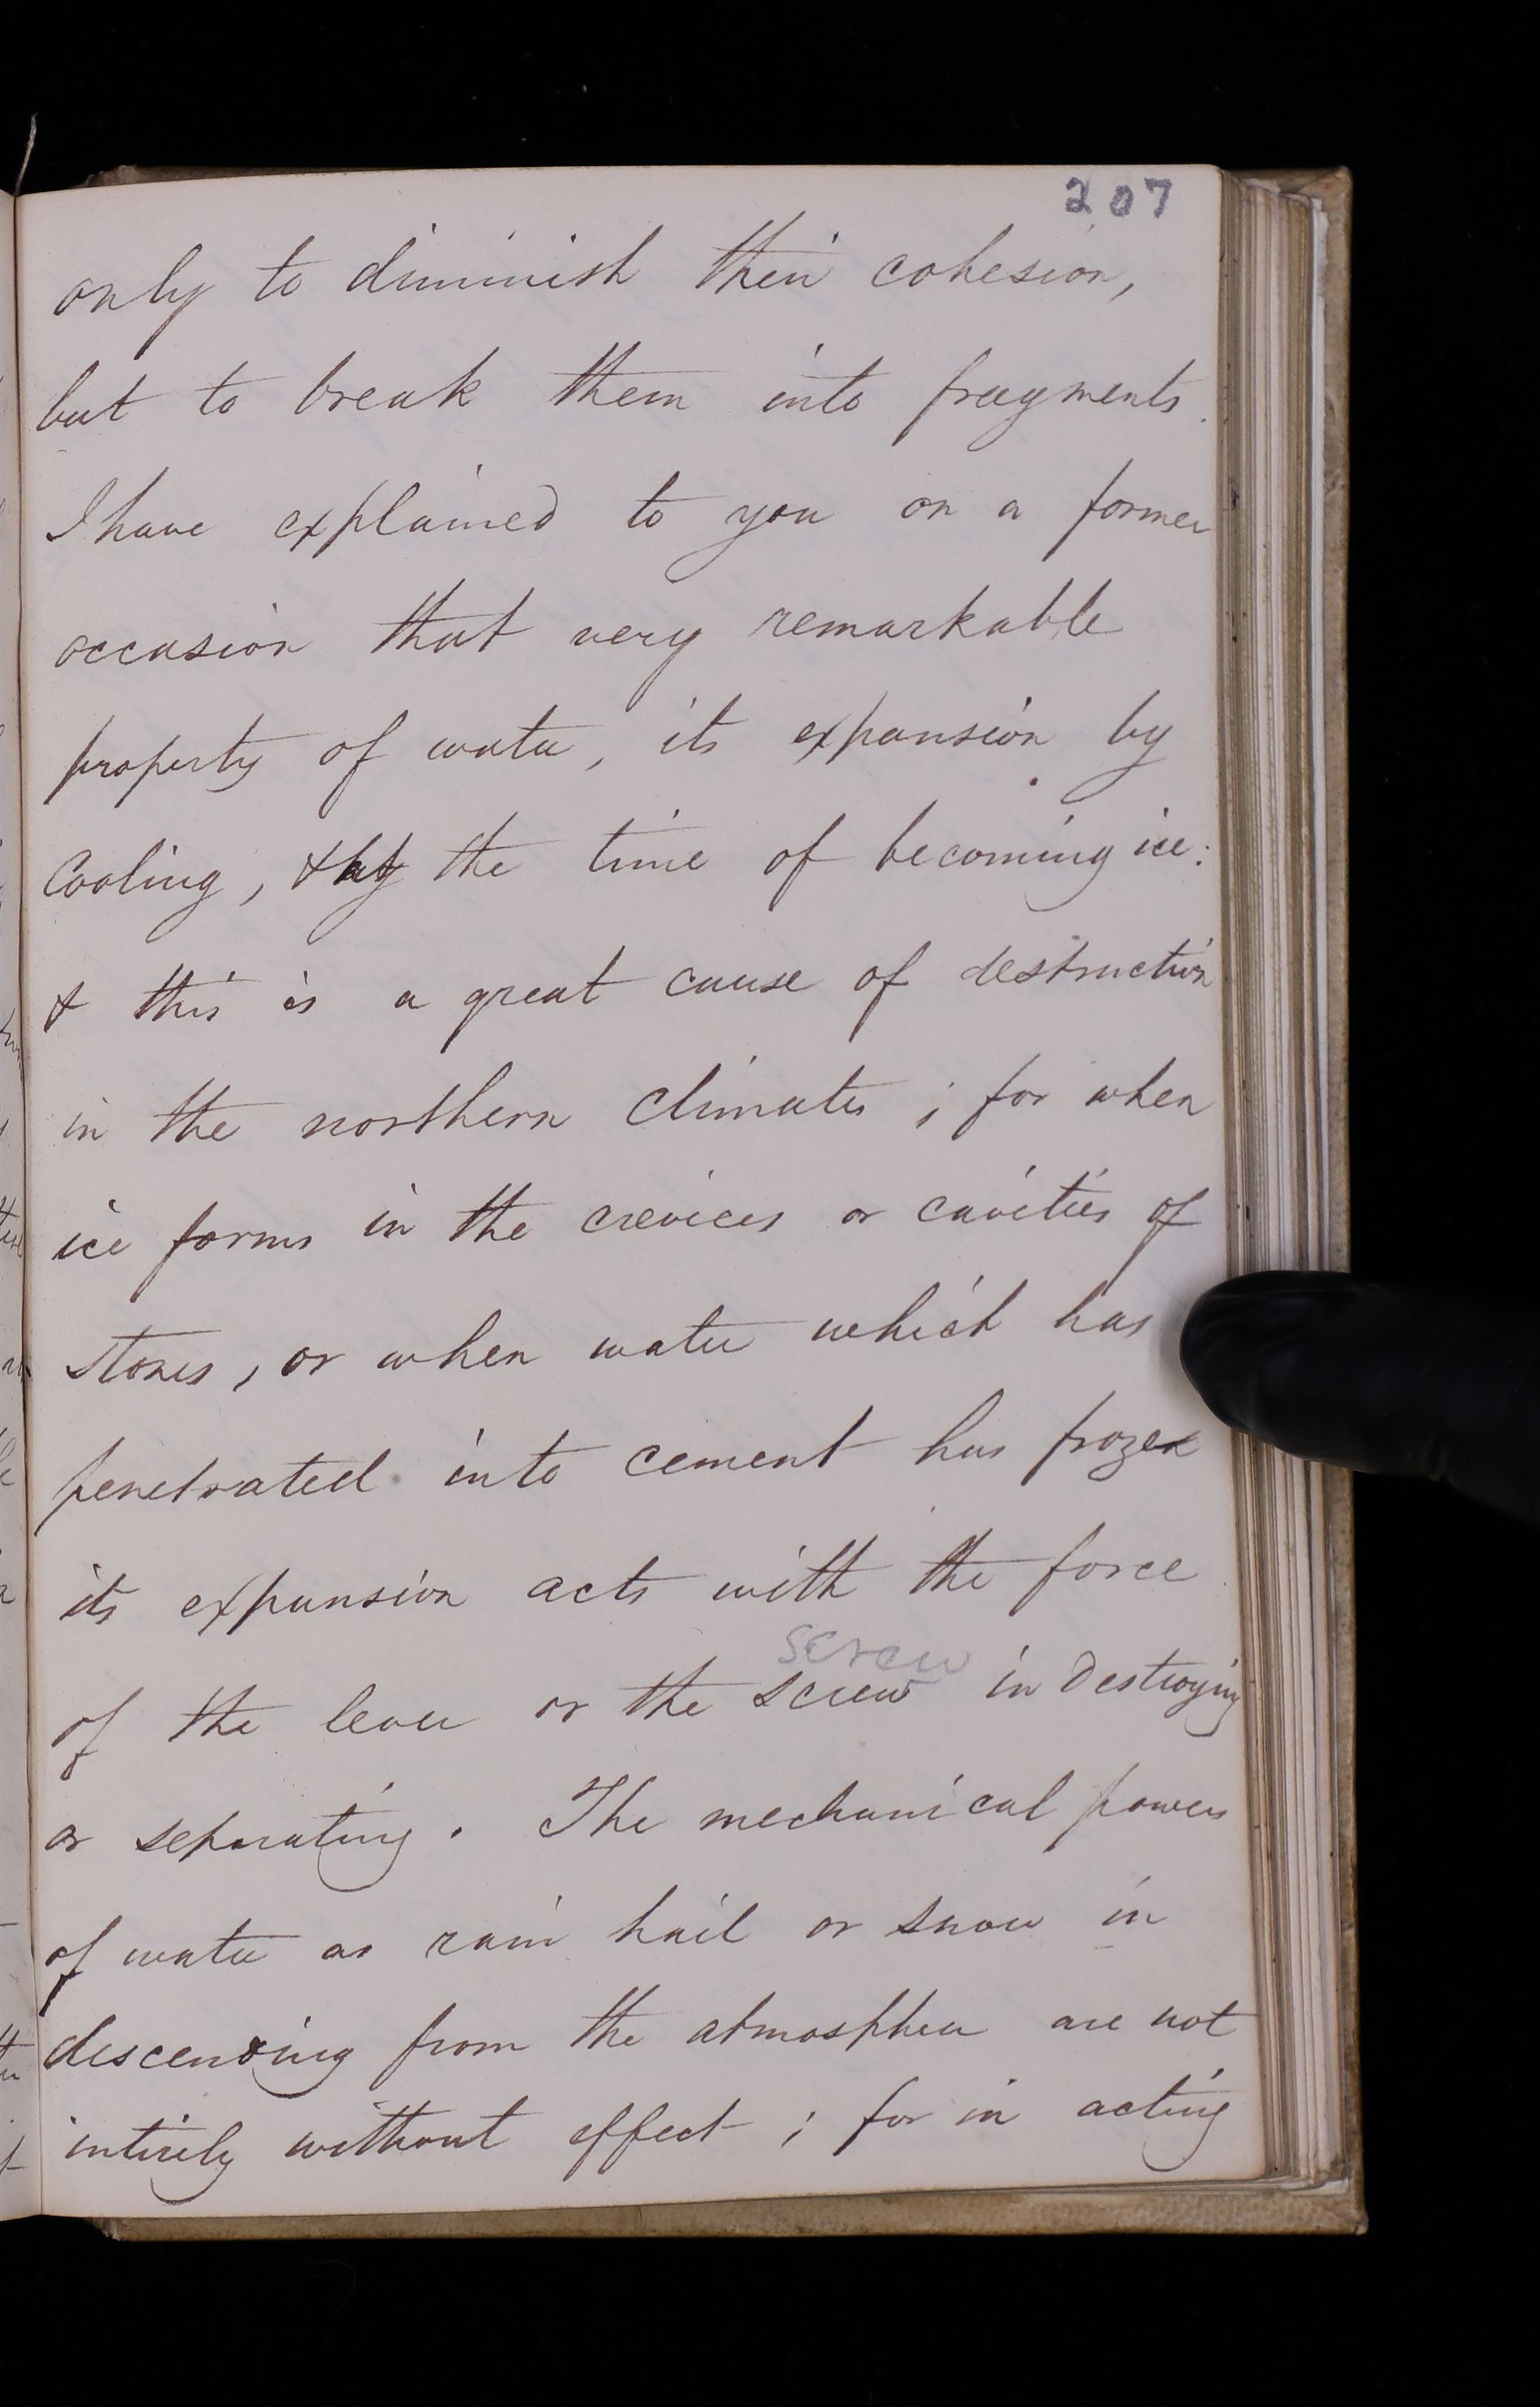 207
only to diminish their cohesion,
but to break them into fragments.
I have explained to you on a former
occasion that very remarkable
property of water, its expansion by
Cooling, & at the time of becoming ice:
& this is a great cause of destruction
in the northern climates; for when
ice forms in the crevices or cavities of
stones, or when water which has
penetrated into cement has frozen
its expansion acts with the force
screw
of the lever or the screw in Destroying
or separating. The mechanical powers
of water as rain hail or snow in
descending from the atmosphere are not
intirely without effect; for in acting